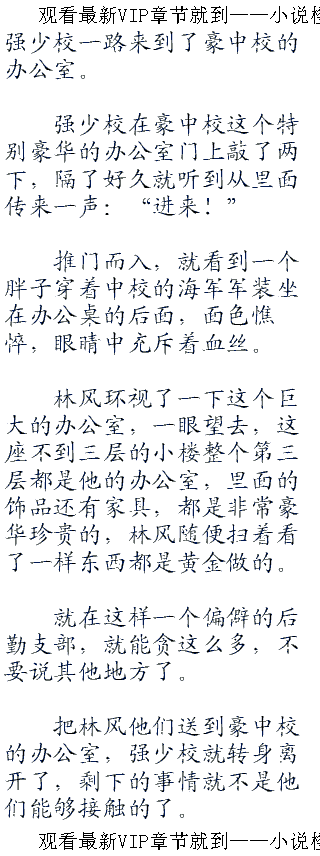 观看最新VIP章节就到——小说
强少校一路来到了豪中校的
办公室。
强少校在豪中校这个特
别豪华的办公室门上敲了两
下，隔了好久就听到从里面
传来一声：“进来！”
推门而入，就看到一个
胖子穿着中校的海军军装坐
在办公桌的后面，面色憔
悴，眼睛中充斥着血丝。
林风环视了一下这个巨
大的办公室，一眼望去，这
座不到三层的小楼整个第三
层都是他的办公室，里面的
饰品还有家具，都是非常豪
华珍贵的，林风随便扫着看
了一样东西都是黄金做的。
就在这样一个偏僻的后
勤支部，就能贪这么多，不
要说其他地方了。
把林风他们送到豪中校
的办公室，强少校就转身离
开了，剩下的事情就不是他
们能够接触的了。
观看最新VIP章节就到——小说